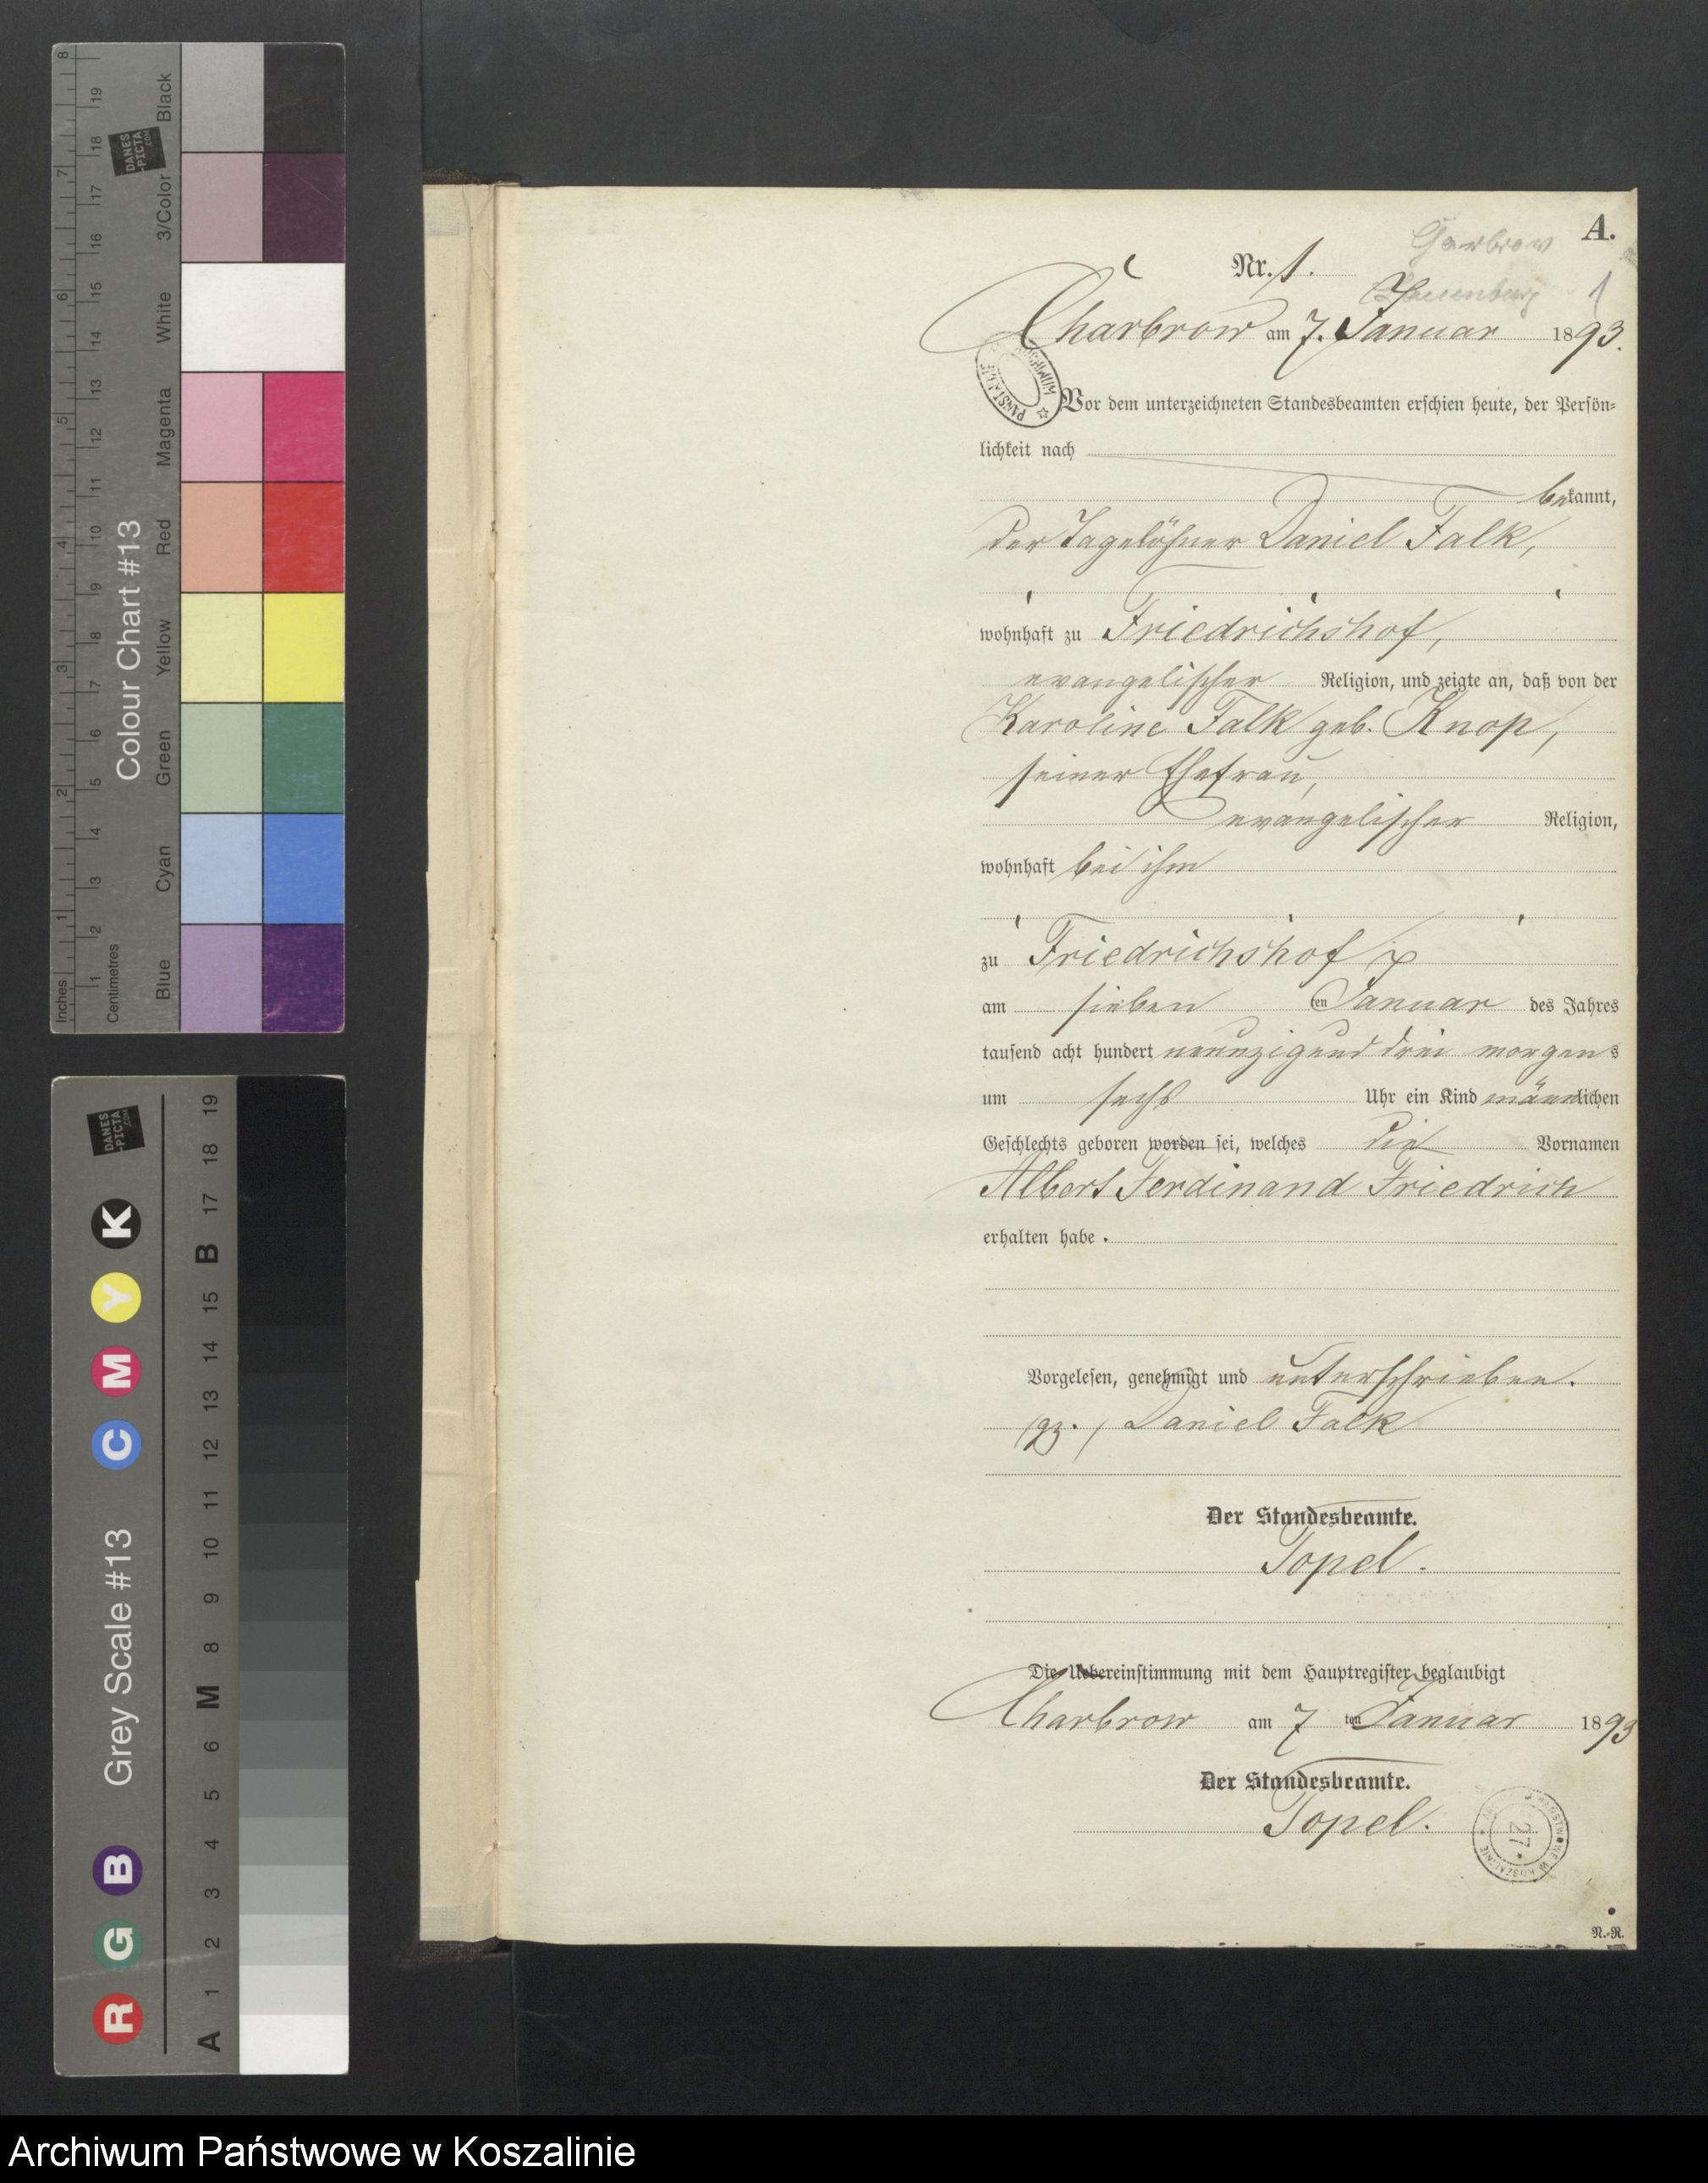 Inches
Centimetres
1 2 3 4 5 6 7 8
1 2 3 4 5 6 7 8 9 10 11 12 13 14 15 16 17 18 19
Colour Chart #13
Blue Cyan Green Yellow Red Magenta White 3/Color Black
DANES
-PICTA
.COM
Grey Scale #13
R G B C M Y K
A 1 2 3 4 5 6 M 8 9 10 11 12 13 14 15 B 17 18 19
DANES
-PICTA
.COM
A.
Garbrow
Nr. 1.
Lauenburg 1
Charbrow am 7. Januar 1893.
Vor dem unterzeichneten Standesbeamten erschien heute, der Persön-
lichkeit nach
bekannt,
der Tagelöhner Daniel Falk,
wohnhaft zu Friedrichshof,
evangelischer Religion, und zeigte an, daß von der
Karoline Falk geb. Knop,
seiner Ehefrau,
evangelischer Religion,
wohnhaft bei ihm
zu Friedrichshof
am sieben ten Januar des Jahres
tausend acht hundert neunzig und drei morgens
um sechs Uhr ein Kind männlichen
Geschlechts geboren worden sei, welches die Vornamen
Albert Ferdinand Friedrich
erhalten habe.
Vorgelesen, genehmigt und unterschrieben.
(gz.) Daniel Falk
Der Standesbeamte.
Topel.
Die Uebereinstimmung mit dem Hauptregister beglaubigt
Charbrow am 7 ten Januar 1893
Der Standesbeamte.
Topel.
27
N.-R.
Archiwum Państwowe w Koszalinie